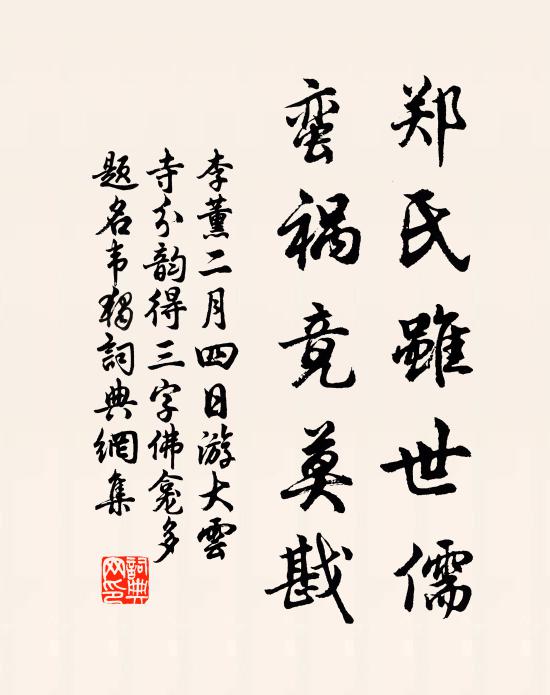 郑氏雖世儒
蛮祸竟莫戡
李薰二月四日游大雲
寺分韵得三字佛龛多
题名韦犭詞典網集
詞典网印